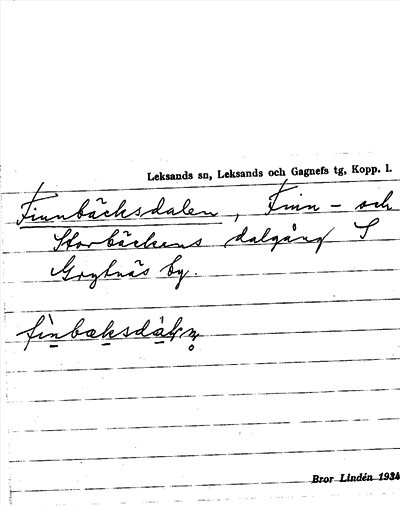 Leksands sn, Leksands och Gagnefs tg, Kopp. l.
Finnbäcksdalen, Finn- och
Storbäckens dalgång S
Grytnäs by.
Bror Lindén 1934